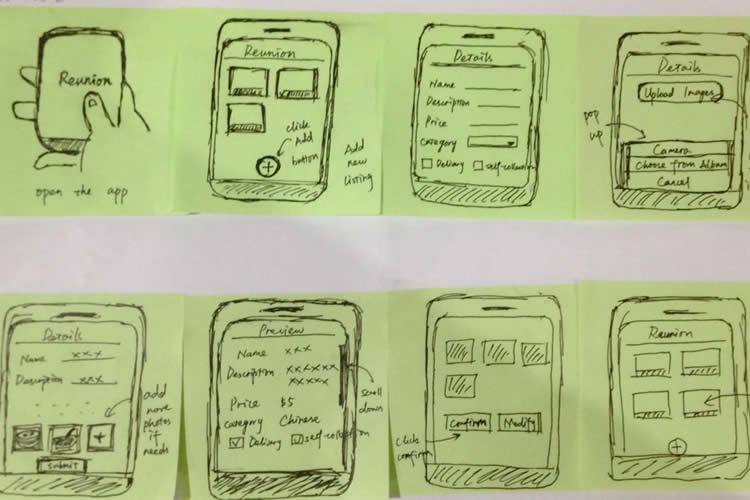 Reunion
open the app
Reunion
click
Add
button
+
Add
new
listing
Details
Name
Description
Price
category
Delivery
self-collection
Details
Upload Images
pop
up
Camera
Choose from Album
Cancel
Details
Name xxx
Description xxx
+
Submit
add
more
photos
if
needs
Preview
Name xxx
Description xxxxxx
xxxxx
Price $5
category Chinese
Delivery
self-collection
scroll
down
Confirm
Modify
click
confirm
Reunion
+